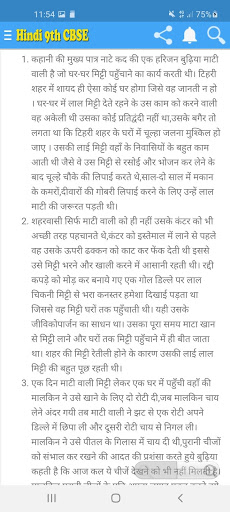 11:54
75%
Hindi 9th CBSE
1. कहानी की मुख्य पात्र नाटे कद की एक हरिजन बुढ़िया माटी
वाली है जो घर-घर मिट्टी पहुँचाने का कार्य करती थी। टिहरी
शहर में शायद ही ऐसा कोई घर होगा जिसे वह जानती न हो
। घर-घर में लाल मिट्टी देते रहने के उस काम को करने वाली
वह अकेली थी उसका कोई प्रतिद्वंदी नहीं था,उसके बगैर तो
लगता था कि टिहरी शहर के घरों में चूल्हा जलना मुश्किल हो
जाए । उसकी लाई मिट्टी वहाँ के निवासियों के बहुत काम
आती थी जैसे वे उस मिट्टी से रसोई और भोजन कर लेने के
बाद चूल्हे चौके की लिपाई करते थे,साल-दो साल में मकान
के कमरों,दीवारों की गोबरी लिपाई करने के लिए उन्हें लाल
माटी की जरूरत पड़ती थी।
2. शहरवासी सिर्फ माटी वाली को ही नहीं उसके कंटर को भी
अच्छी तरह पहचानते थे,कंटर को इस्तेमाल में लाने से पहले
वह उसके ऊपरी ढक्कन को काट कर फेंक देती थी इससे
उसे मिट्टी भरने और खाली करने में आसानी रहती थी। रद्दी
कपड़े को मोड़ कर बनाये गए एक गोल डिल्ले पर लाल
चिकनी मिट्टी से भरा कनस्तर हमेशा दिखाई पड़ता था
जिससे वह मिट्टी घरों तक पहुँचाती थी। यही उसके
जीविकोपार्जन का साधन था। उसका पूरा समय माटा खान
से मिट्टी लाने और घरों तक मिट्टी पहुँचाने में ही बीत जाता
था। शहर की मिट्टी रेतीली होने के कारण उसकी लाई लाल
मिट्टी की बहुत पूछ रहती थी।
3. एक दिन माटी वाली मिट्टी लेकर एक घर में पहुँची वहाँ की
मालकिन ने उसे खाने के लिए दो रोटी दी,जब मालकिन चाय
लेने अंदर गयी तब माटी वाली ने झट से एक रोटी अपने
डिल्ले में छिपा ली और दूसरी रोटी चाय से निगल ली।
मालकिन ने उसे पीतल के गिलास में चाय दी थी,पुरानी चीजों
को संभाल कर रखने की आदत की प्रशंसा करते हुये बुढ़िया
कहती है कि आज कल ये चीजें देखने को भी नहीं मिलती